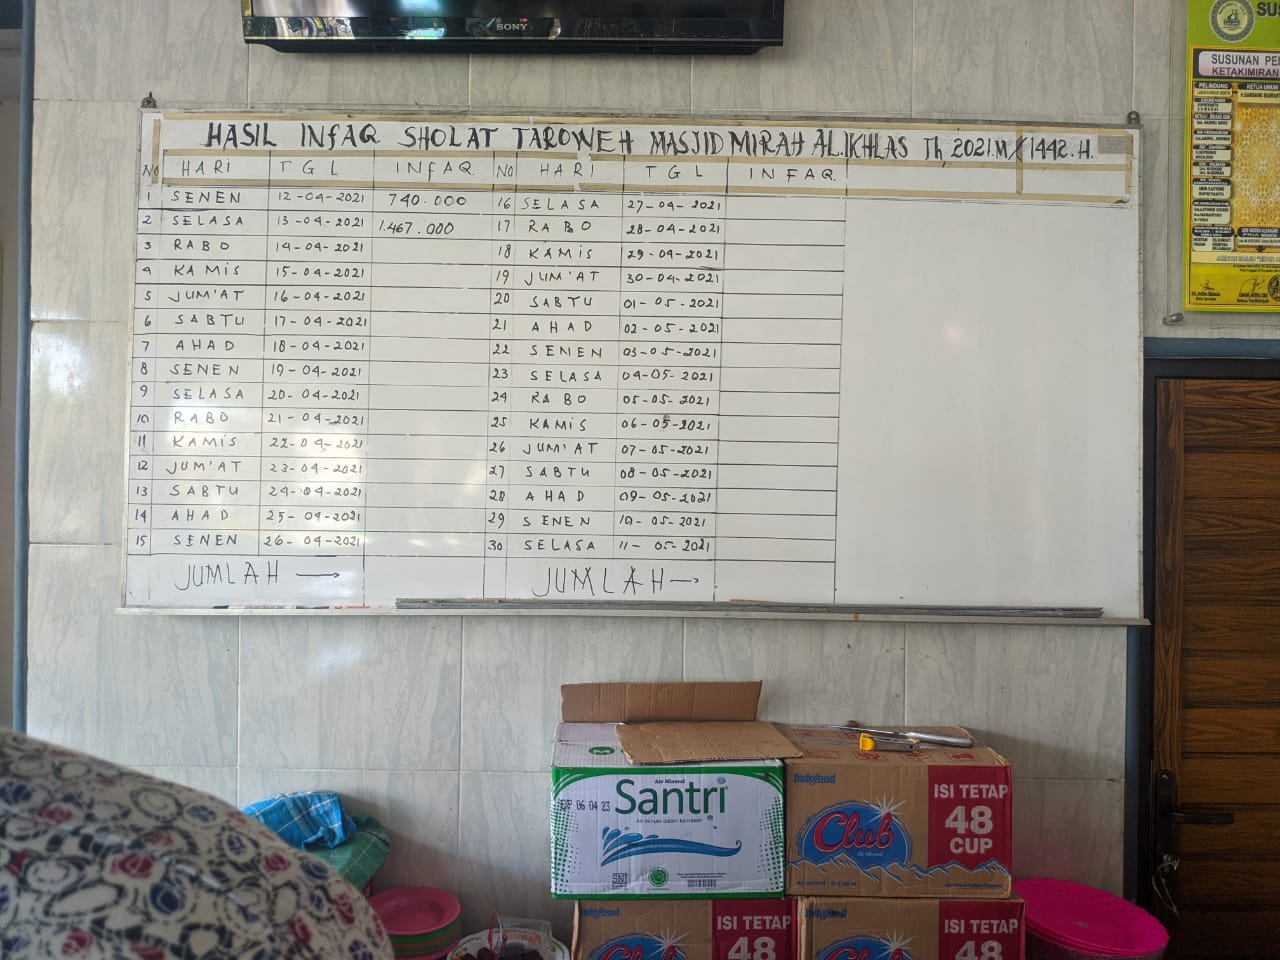 SONY
HASIL INFAQ SHOLAT TAROWEH MASJID MIRAH AL.IKHLAS Th, 2021.M/1442.H.
NO HARI TGL INFAQ NO HARI TGL INFAQ
1 SENEN 12-04-2021 740.000 16 SELASA 27-04-2021
2 SELASA 13-04-2021 1.467.000 17 RABO 28-04-2021
3 RABO 14-04-2021 18 KAMIS 29-04-2021
4 KAMIS 15-04-2021 19 JUM'AT 30-04-2021
5 JUM'AT 16-04-2021 20 SABTU 01-05-2021
6 SABTU 17-04-2021 21 AHAD 02-05-2021
7 AHAD 18-04-2021 22 SENEN 03-05-2021
8 SENEN 19-04-2021 23 SELASA 04-05-2021
9 SELASA 20-04-2021 24 RABO 05-05-2021
10 RABO 21-04-2021 25 KAMIS 06-05-2021
11 KAMIS 22-04-2021 26 JUM'AT 07-05-2021
12 JUM'AT 23-04-2021 27 SABTU 08-05-2021
13 SABTU 24-04-2021 28 AHAD 09-05-2021
14 AHAD 25-04-2021 29 SENEN 10-05-2021
15 SENEN 26-04-2021 30 SELASA 11-05-2021
JUMLAH → JUMLAH →
SUSUNAN
KETAKMIRAN
PELINDUNG KETUA UMUM
Air Mineral
Santri
Air minum dalam kemasan
EXP 06 04 23
SNI
Indofood
Club
Air Mineral
ISI TETAP
48
CUP
Indofood
ISI TETAP
48
Indofood
ISI TETAP
48